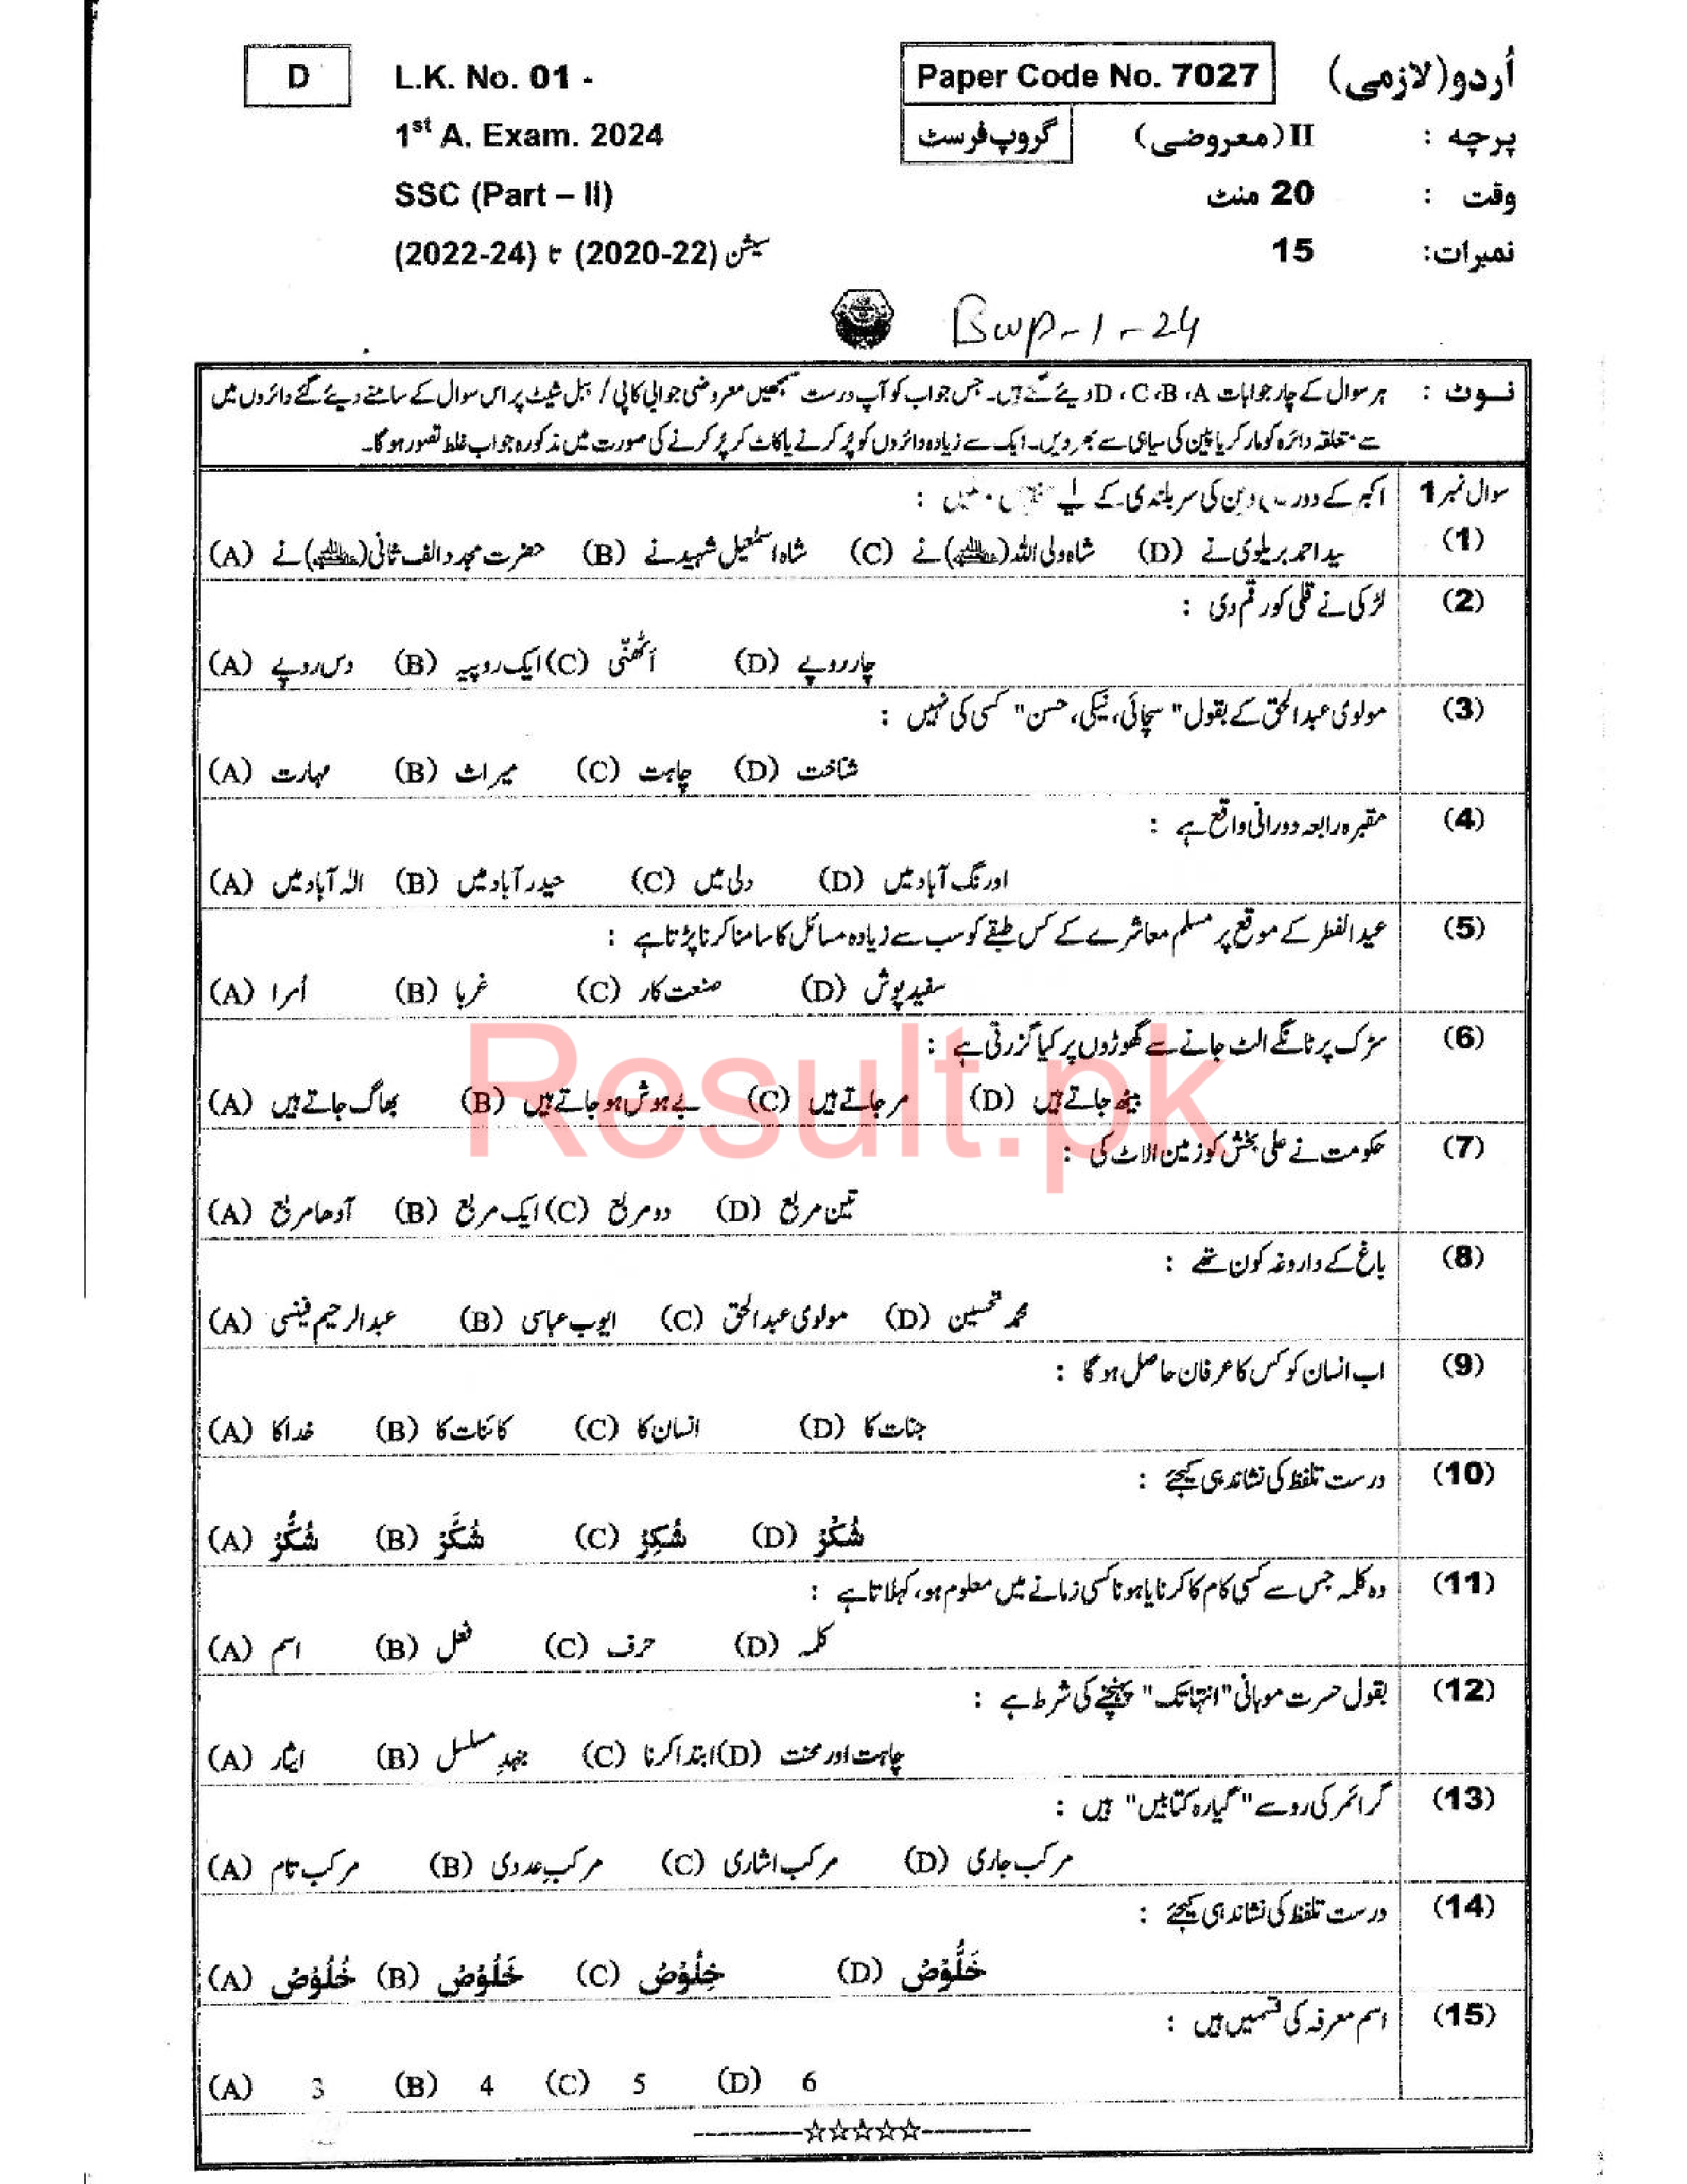 D L.K. No. 01 - Paper Code No. 7027 اُردو(لازمی)
1st A. Exam. 2024 گروپ فرسٹ پرچہ : II(معروضی)
SSC (Part – II) وقت : 20 منٹ
سیشن (2020-22) تا (2022-24) نمبرات: 15
Bwp-1-24
نوٹ : ہر سوال کے چار جوابات D ، C ،B ،A دیئے گئے ہیں۔ جس جواب کو آپ درست سمجھیں معروضی جوابی کاپی / ببل شیٹ پر اس سوال کے سامنے دیے گئے دائروں میں
سے متعلقہ دائرہ کو مارکر یا پین کی سیاہی سے بھر دیں۔ ایک سے زیادہ دائروں کو پُر کرنے یا کاٹ کر پُر کرنے کی صورت میں مذکورہ جواب غلط تصور ہوگا۔
سوال نمبر 1 اکبر کے دور میں دین کی سربلندی کے لیے :
(1) (A) حضرت مجدد الف ثانی()نے (B) شاہ اسمٰعیل شہید نے (C) شاہ ولی اللہ()نے (D) سید احمد بریلوی نے
(2) لڑکی نے قلی کو رقم دی :
(A) دس روپے (B) ایک روپیہ (C) اٹھنّی (D) چار روپے
(3) مولوی عبدالحق کے بقول "سچائی، نیکی، حسن" کسی کی نہیں :
(A) مہارت (B) میراث (C) چاہت (D) شناخت
(4) مقبرہ رابعہ دورانی واقع ہے :
(A) الہٰ آباد میں (B) حیدر آباد میں (C) دلی میں (D) اورنگ آباد میں
(5) عید الفطر کے موقع پر مسلم معاشرے کے کس طبقے کو سب سے زیادہ مسائل کا سامنا کرنا پڑتا ہے :
(A) اُمرا (B) غربا (C) صنعت کار (D) سفید پوش
(6) سڑک پر ٹانگے الٹ جانے سے گھوڑوں پر کیا گزرتی ہے :
(A) بھاگ جاتے ہیں (B) بے ہوش ہو جاتے ہیں (C) مر جاتے ہیں (D) بیٹھ جاتے ہیں
(7) حکومت نے علی بخش کو زمین الاٹ کی :
(A) آدھا مربع (B) ایک مربع (C) دو مربع (D) تین مربع
(8) باغ کے داروغہ کون تھے :
(A) عبدالرحیم فینسی (B) ایوب عباسی (C) مولوی عبدالحق (D) محمد تحسین
(9) اب انسان کو کس کا عرفان حاصل ہوگا :
(A) خدا کا (B) کائنات کا (C) انسان کا (D) جنات کا
(10) درست تلفظ کی نشاندہی کیجئے :
(A) شُکُّرْ (B) شُکَّرْ (C) شُکِرْ (D) شُکْرْ
(11) وہ کلمہ جس سے کسی کام کا کرنا یا ہونا کسی زمانے میں معلوم ہو، کہلاتا ہے :
(A) اسم (B) فعل (C) حرف (D) کلمہ
(12) بقول حسرت موہانی "انتہا تک" پہنچنے کی شرط ہے :
(A) ایثار (B) جہدِ مسلسل (C) ابتدا کرنا (D) چاہت اور محنت
(13) گرائمر کی رو سے "گیارہ کتابیں" ہیں :
(A) مرکب تام (B) مرکبِ عددی (C) مرکب اشاری (D) مرکب جاری
(14) درست تلفظ کی نشاندہی کیجئے :
(A) خُلُوْصْ (B) خَلُوْصْ (C) خِلُوْصْ (D) خَلُّوْصْ
(15) اسم معرفہ کی قسمیں ہیں :
(A) 3 (B) 4 (C) 5 (D) 6
Result.pk